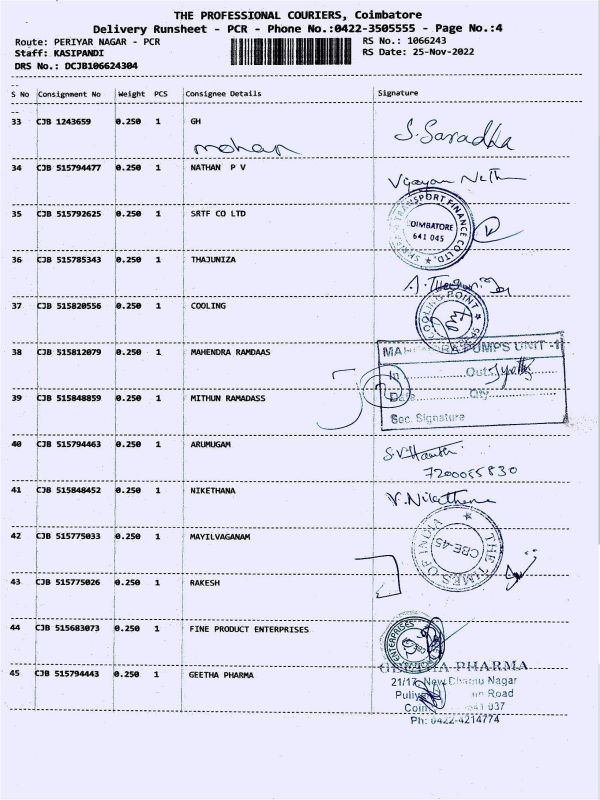 THE PROFESSIONAL COURIERS, Coimbatore
Delivery Runsheet - PCR - Phone No.:0422-3505555 - Page No.:4
Route: PERIYAR NAGAR - PCR RS No.: 1066243
Staff: KASIPANDI RS Date: 25-Nov-2022
DRS No.: DCJB106624304
S No Consignment No Weight PCS Consignee Details Signature
33 CJB 1243659 0.250 1 GH
mohan S. Saradha
34 CJB 515794477 0.250 1 NATHAN P V
35 CJB 515792625 0.250 1 SRTF CO LTD
TRANSPORT FINANCE CO LTD.
COIMBATORE
641 045
36 CJB 515785343 0.250 1 THAJUNIZA
37 CJB 515820556 0.250 1 COOLING
COOLING POINT
38 CJB 515812079 0.250 1 MAHENDRA RAMDAAS
PUMPS UNIT -1
In Out
39 CJB 515848859 0.250 1 MITHUN RAMADASS
Date Qty
Sec. Signature
40 CJB 515794463 0.250 1 ARUMUGAM
7200055830
41 CJB 515848452 0.250 1 NIKETHANA
V. Nikethana
42 CJB 515775033 0.250 1 MAYILVAGANAM
THE TIMES OF INDIA
CBE-45
43 CJB 515775026 0.250 1 RAKESH
44 CJB 515683073 0.250 1 FINE PRODUCT ENTERPRISES
ENTERPRISES
45 CJB 515794443 0.250 1 GEETHA PHARMA
GEETHA PHARMA
21/17, New Nagar
Road
037
Ph: 0422-4214774